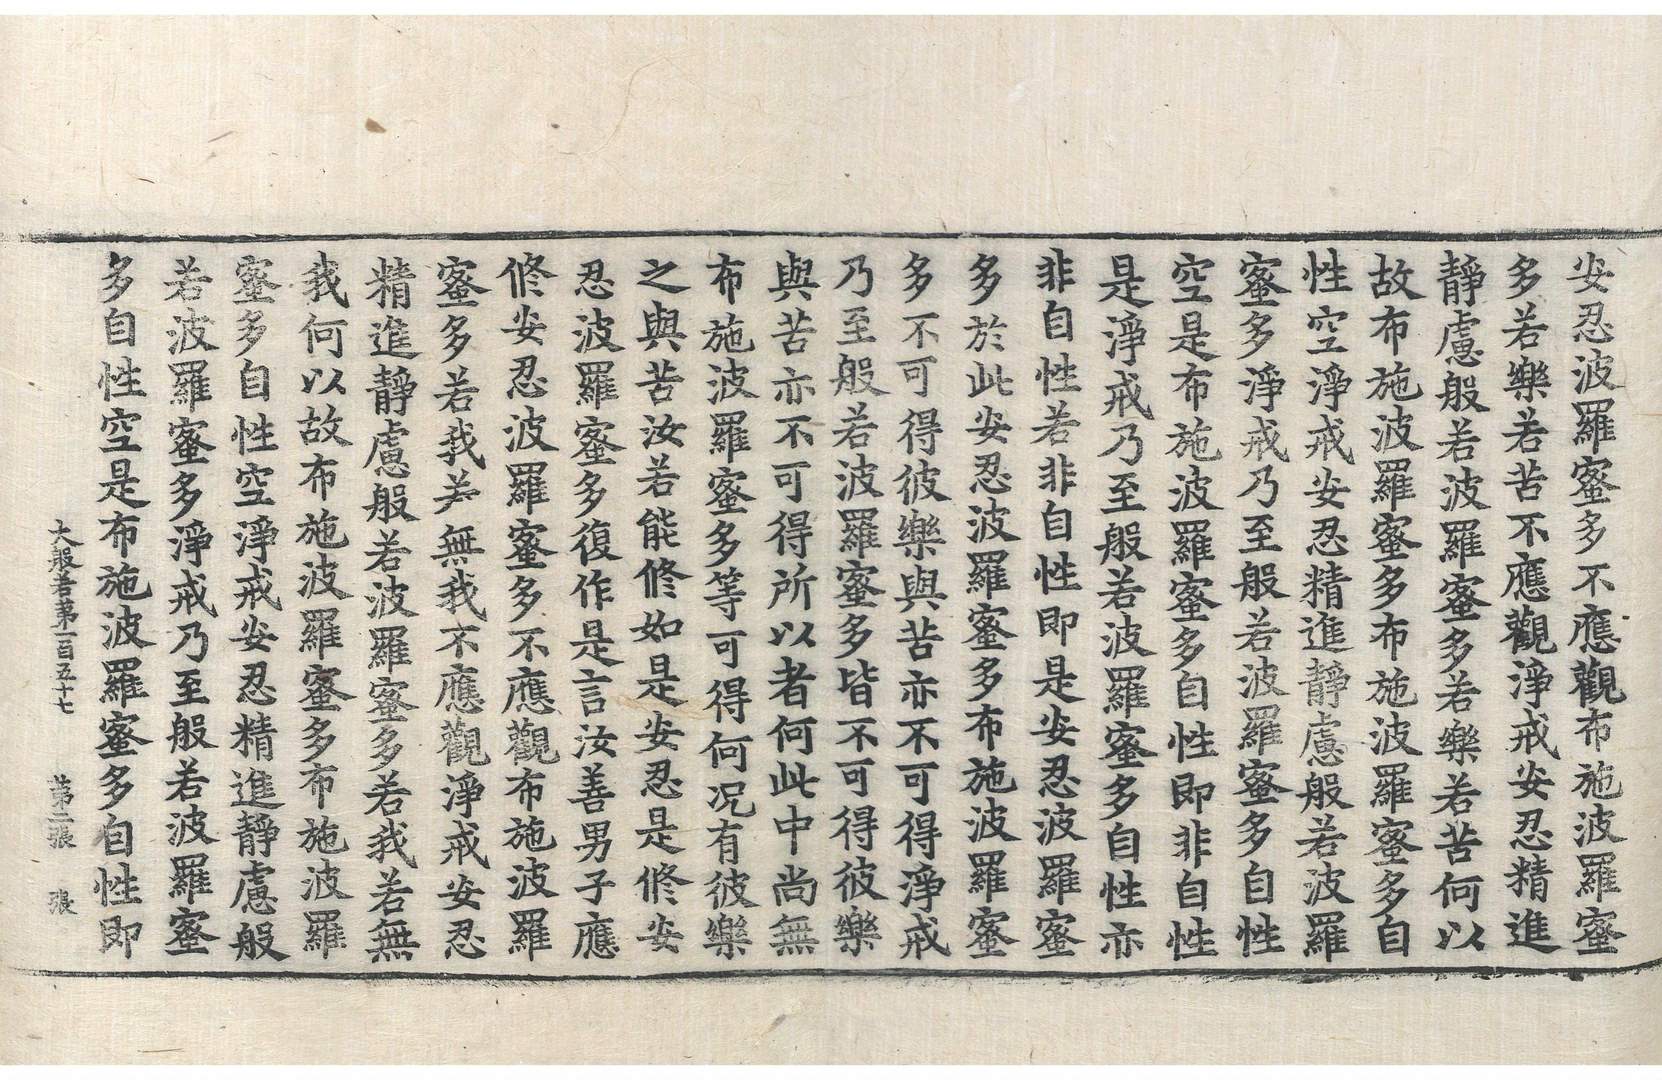 安忍波羅蜜多不應觀布施波羅蜜
多若樂若苦不應觀淨戒安忍精進
靜慮般若波羅蜜多若樂若苦何以
故布施波羅蜜多布施波羅蜜多自
性空淨戒安忍精進靜慮般若波羅
蜜多淨戒乃至般若波羅蜜多自性
空是布施波羅蜜多自性即非自性
是淨戒乃至般若波羅蜜多自性亦
非自性若非自性即是安忍波羅蜜
多於此安忍波羅蜜多布施波羅蜜
多不可得彼樂與苦亦不可得淨戒
乃至般若波羅蜜多皆不可得彼樂
與苦亦不可得所以者何此中尚無
布施波羅蜜多等可得何況有彼樂
之與苦汝若能修如是安忍是修安
忍波羅蜜多復作是言汝善男子應
修安忍波羅蜜多不應觀布施波羅
蜜多若我若無我不應觀淨戒安忍
精進靜慮般若波羅蜜多若我若無
我何以故布施波羅蜜多布施波羅
蜜多自性空淨戒安忍精進靜慮般
若波羅蜜多淨戒乃至般若波羅蜜
多自性空是布施波羅蜜多自性即
大般若第一百五十七 第二張 張